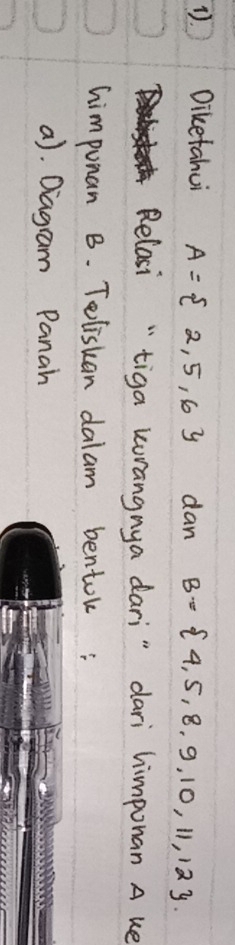 1). Diketahui A = { 2, 5, 6 } dan B = { 4, 5, 8, 9, 10, 11, 12 }.
Relasi " tiga kurangnya dari " dari himpunan A ke
himpunan B. Tuliskan dalam bentuk :
a). Diagram Panah